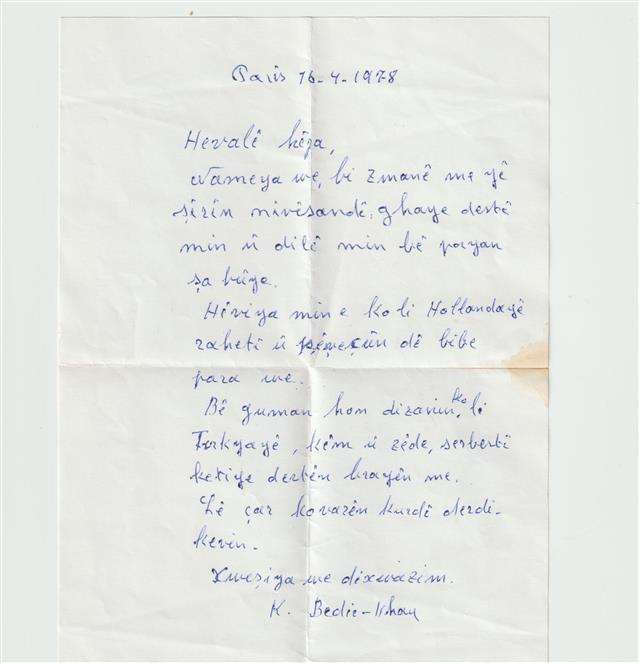 Paris 16-4-1978
Hevalê hêja,
Nameya we, bi zmanê me yê
şîrîn nivêsandê, ghaye destê
min û dilê min bê payan
şa bûye.
Hêviya min e ko li Hollandayê
rahetî û pêşveçûn dê bibe
para we.
Bê guman hon dizanin, ko li
Tirkyayê, kêm û zêde, serbertî
ketiye destên brayên me.
Lê çar kovarên kurdê derdi-
kevin.
Xweşiya we dixwazim.
K. Bedir-Khan